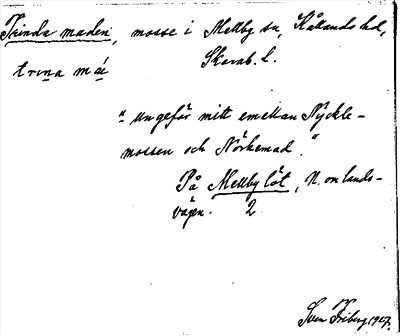 Trinda maden, mosse i Mellby sn, Kållands hd,
trına má́ı Skarab. l.
"ungefär mitt emellan Nyckle-
mossen och Nörkemad."
På Mellby löt, N. om lands-
vägen. 2
Sven Friberg 1927.